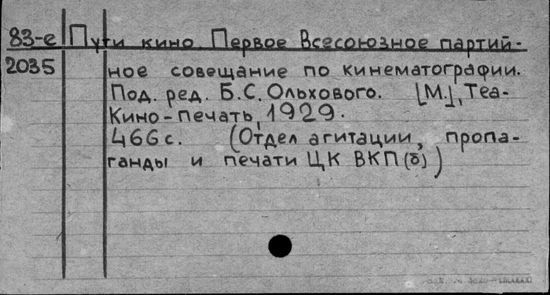 83-е Пути кино. Первое Всесоюзное партий-
2035 ное совещание по кинематографии.
Под. ред. Б.С. Ольхового. [М.], Теа-
Кино-печать, 1929.
466 с. (Отдел агитации, пропа-
ганды и печати ЦК ВКП(б))